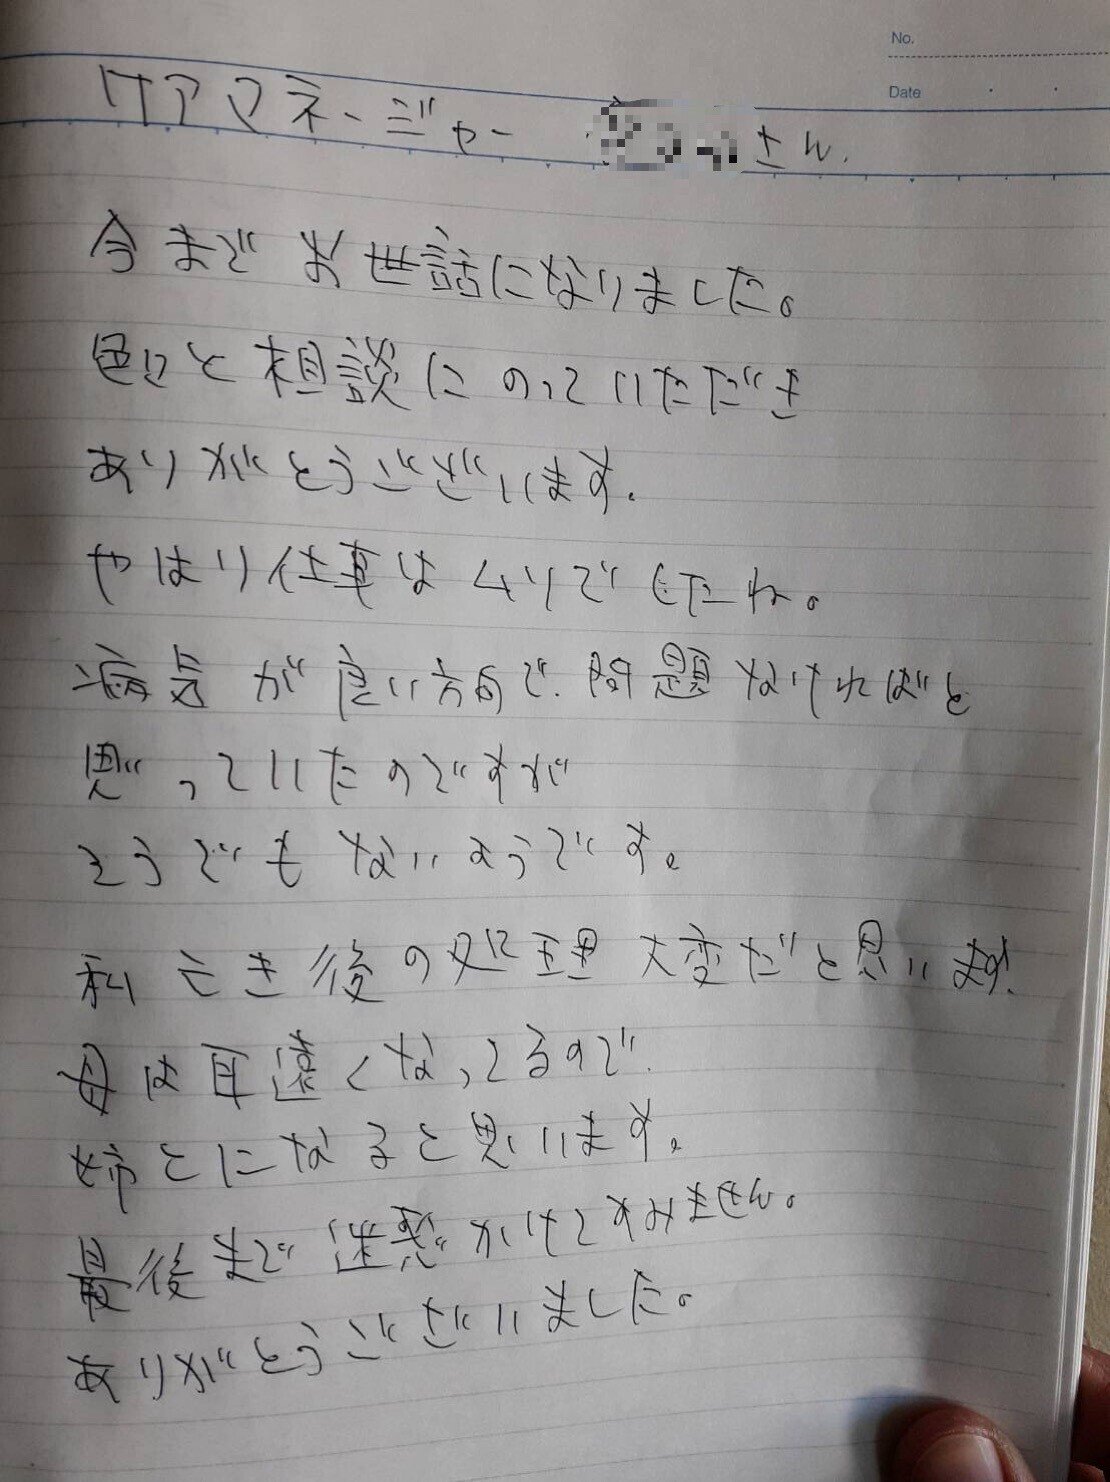 No.
Date
ケアマネージャー さん.
今までお世話になりました。
色々と相談にのっていただき
ありがとうございます.
やはり仕事はムリでしたね。
病気が良い方向で.問題なければと
思っていたのですが
そうでもないようです。
私亡き後の処理大変だと思います.
母は耳遠くなってるので.
姉とになると思います。
最後まで迷惑かけてすみません。
ありがとうございました。